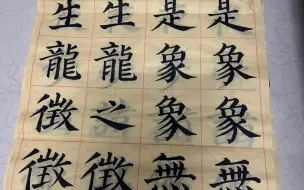 是象象無
是象象無
生龍之徵
生龍徵徵